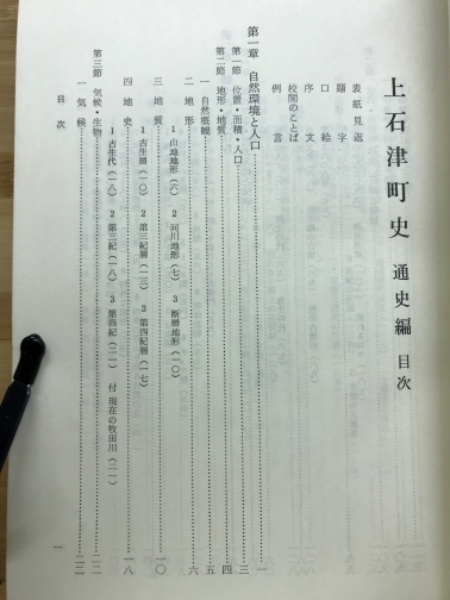 上石津町史 通史編 目次
表紙見返
題字
口絵
序文
校閲のことば
例言
第一章 自然環境と人口……一
第一節 位置・面積・人口……三
第二節 地形・地質……四
一 自然概観……五
二 地形……六
1 山地地形(六) 2 河川地形(七) 3 断層地形(一〇)
三 地質……一〇
1 古生層(一〇) 2 第三紀層(一三) 3 第四紀層(一七)
四 地史……一八
1 古生代(一八) 2 第三紀(一八) 3 第四紀(二一) 付 現在の牧田川(二一)
第三節 気候・生物……二二
一 気候……二二
目次
一